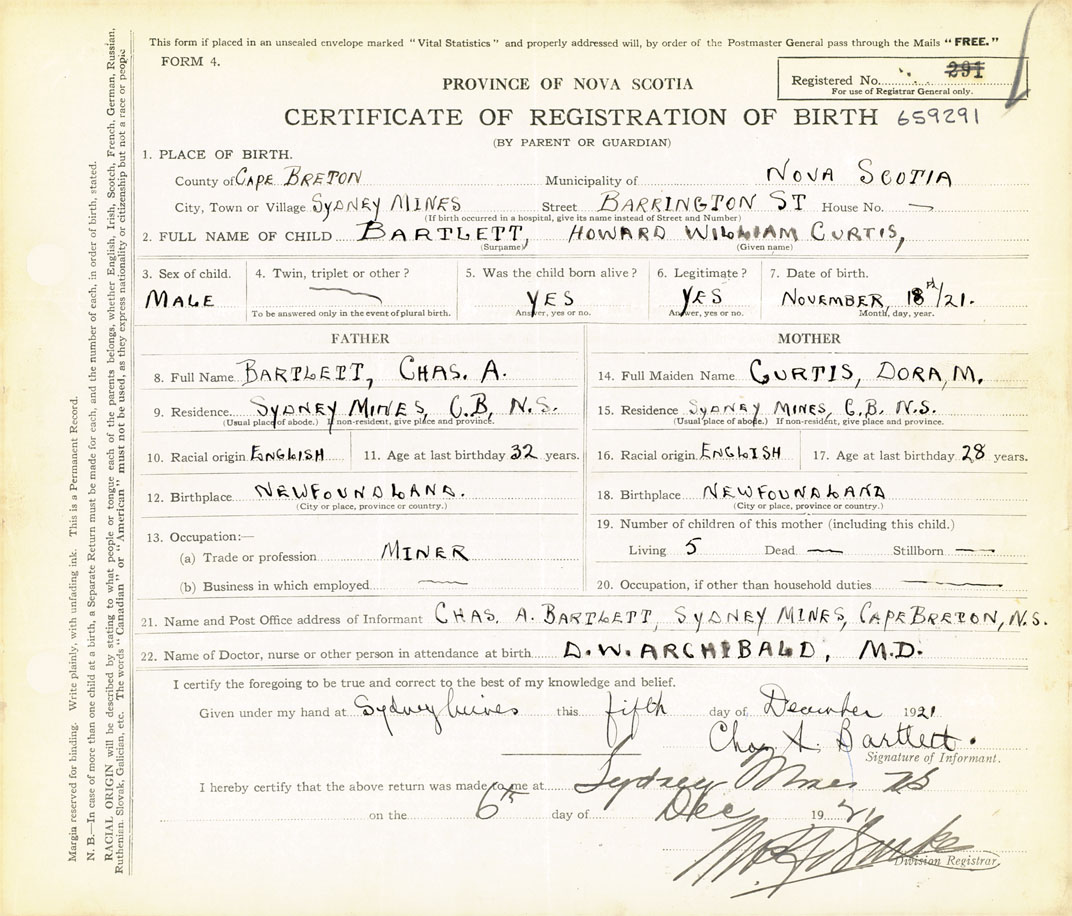 This form if placed in an unsealed envelope marked "Vital Statistics" and properly addressed will, by order of the Postmaster General pass through the Mails "FREE."
FORM 4.
Registered No. 291
For use of Registrar General only.
PROVINCE OF NOVA SCOTIA
CERTIFICATE OF REGISTRATION OF BIRTH 659291
(BY PARENT OR GUARDIAN)
1. PLACE OF BIRTH.
County of CAPE BRETON Municipality of NOVA SCOTIA
City, Town or Village SYDNEY MINES Street BARRINGTON ST House No. —
(If birth occurred in a hospital, give its name instead of Street and Number)
2. FULL NAME OF CHILD BARTLETT, HOWARD WILLIAM CURTIS,
(Surname) (Given name)
3. Sex of child. 4. Twin, triplet or other? 5. Was the child born alive? 6. Legitimate? 7. Date of birth.
MALE — YES YES NOVEMBER, 18 /21.
To be answered only in the event of plural birth. Answer, yes or no. Answer, yes or no. Month, day, year.
FATHER
8. Full Name BARTLETT, CHAS. A.
9. Residence SYDNEY MINES, C.B, N.S.
(Usual place of abode.) If non-resident, give place and province.
10. Racial origin ENGLISH 11. Age at last birthday 32 years.
12. Birthplace NEWFOUNDLAND.
(City or place, province or country.)
13. Occupation:—
(a) Trade or profession MINER
(b) Business in which employed —
MOTHER
14. Full Maiden Name CURTIS, DORA, M.
15. Residence SYDNEY MINES, C.B. N.S.
(Usual place of abode.) If non-resident, give place and province.
16. Racial origin ENGLISH 17. Age at last birthday 28 years.
18. Birthplace NEWFOUNDLAND
(City or place, province or country.)
19. Number of children of this mother (including this child.)
Living 5 Dead — Stillborn —
20. Occupation, if other than household duties —
21. Name and Post Office address of Informant CHAS. A. BARTLETT, SYDNEY MINES, CAPE BRETON, N.S.
22. Name of Doctor, nurse or other person in attendance at birth D.W. ARCHIBALD, M.D.
I certify the foregoing to be true and correct to the best of my knowledge and belief.
Given under my hand at Sydney Mines this fifth day of December 1921
Chas A. Bartlett.
Signature of Informant.
I hereby certify that the above return was made to me at Sydney Mines NS
on the 6th day of Dec 1921
Division Registrar
Margin reserved for binding. Write plainly, with unfading ink. This is a Permanent Record.
N. B.—In case of more than one child at a birth, a Separate Return must be made for each, and the number of each, in order of birth, stated.
RACIAL ORIGIN will be described by stating to what people or tongue each of the parents belongs, whether English, Irish, Scotch, French, German, Russian,
Ruthenian, Slovak, Galician, etc. The words "Canadian" or "American" must not be used, as they express nationality or citizenship but not a race or people